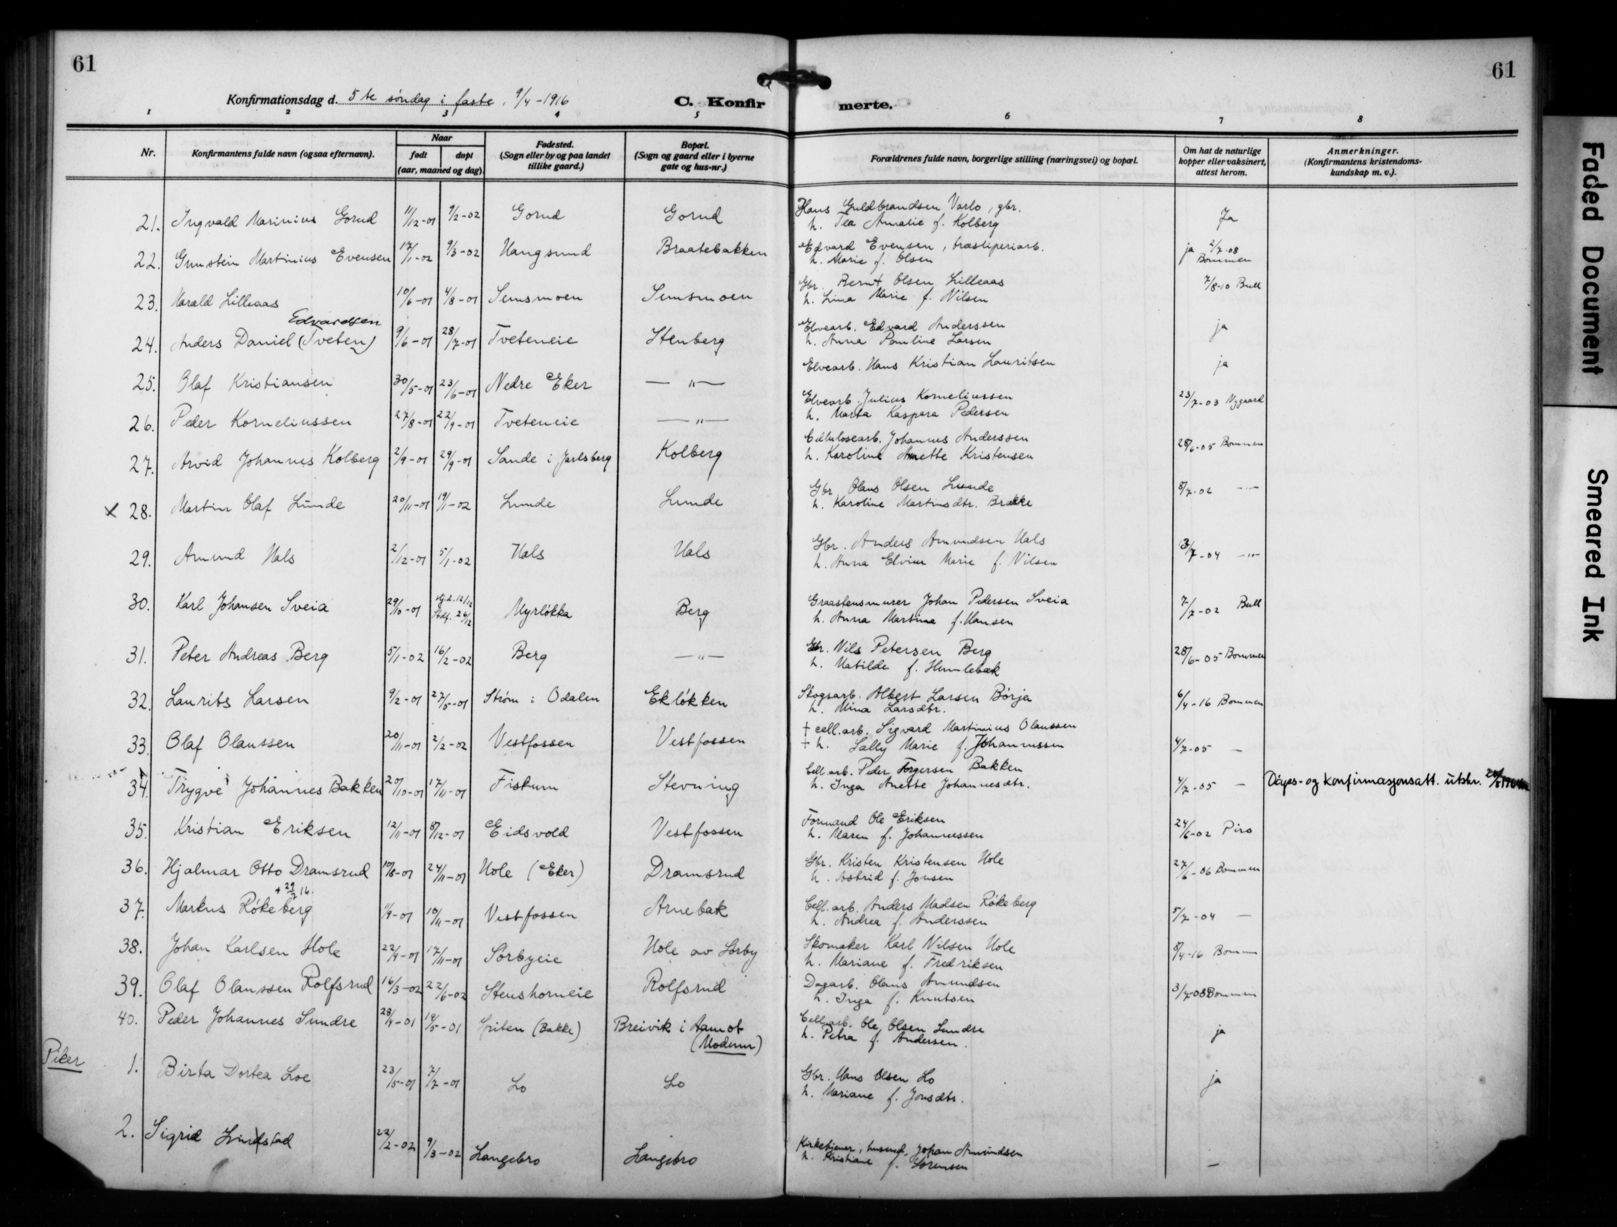 61
61
Konfirmationsdag d. 5te søndag i faste. 9/4-1916
C. Konfirmerte.
1 2 3 4 5 6 7 8
Nr. Konfirmantens fulde navn (ogsaa efternavn). Naar født døpt (aar, maaned og dag). Fødested. (Sogn eller by og paa landet tillike gaard.) Bopæl. (Sogn og gaard eller i byerne gate og hus-nr.) Forældrenes fulde navn, borgerlige stilling (næringsvei) og bopæl. Om hat de naturlige kopper eller vaksinert, attest herom. Anmerkninger. (Konfirmantens kristendomskundskap m. v.).
21. Ingvald Marinius Gorud /12-01 9/2-02 Gorud Gorud Hans Guldbrandsen Varlo, gbr. Ja
h. Tea Amalie f. Kolberg
22. Gunstein Martinius Evensen 17/1-02 9/3-02 Hangsund Braatebakken Edvard Evensen, træsliperiarb. ja 2/7-08 Bommen
h. Marie f. Olsen
23. Harald Lilleaas 10/6-01 4/8-01 Semsmoen Semsmoen Gbr. Bernt Olsen Lilleaas 7/8-10 Bull
h. Lina Marie f. Nilsen
Edvardsen
24. Anders Daniel (Tveten) 9/6-01 28/7-01 Tveteneie Stenberg Elvearb. Edvard Anderssen ja
h. Anna Pauline Larsen
25. Olaf Kristiansen 30/5-01 23/6-01 Nedre Eker — " — Elvearb. Hans Kristian Lauritsen ja
26. Peder Korneliussen 27/8-01 22/9-01 Tveteneie — " — Elvearb. Julius Korneliussen 23/7-03 Nygaard
h. Marta Kaspara Pedersen
27. Arvid Johannes Kolberg 2/9-01 29/9-01 Sande i Jarlsberg Kolberg Cellulosearb. Johannes Anderssen 28/6-05 Bommen
h. Karoline Anette Kristensen
x 28. Martin Olaf Lunde 20/11-01 19/1-02 Lunde Lunde Gbr. Olaus Olsen Lunde 8/7-02 — " —
h. Karoline Martinsdtr. Brække
29. Amund Hals 2/12-01 5/1-02 Hals Hals Gbr. Anders Amundsen Hals 13/7-04 — " —
h. Anna Elvine Marie f. Nilsen
30. Karl Johansen Sveia 29/10-01 Myrløkka Berg Graastensmurer Johan Pedersen Sveia 7/7-02 Bull
h. Anna Martina f. Hansen
31. Peter Andreas Berg 5/1-02 16/2-02 Berg — " — Gbr. Nils Petersen Berg 28/6-05 Bommen
h. Matilde f. Humlebæk
32. Laurits Larsen 9/2-01 27/5-01 Strøm i Odalen Ekløkken Skogsarb. Albert Larsen Børja 6/4-16 Bommen
h. Mina Larsdtr.
33. Olaf Olaussen 20/11-01 2/2-02 Vestfossen Vestfossen + cell.arb. Sigvard Martinius Olaussen 4/7-05 —
+ h. Sally Marie f. Johannessen
34. Trygve Johannes Bakken 20/10-01 17/11-01 Fiskum Stevning Cell.arb. Peder Torgersen Bakken 4/7-05 — Dåps- og konfirmasjonsatt. utskr.
h. Inga Anette Johannesdtr.
35. Kristian Eriksen 12/11-01 8/12-01 Eidsvold Vestfossen Formand Ole Eriksen 24/6-02 Piro
h. Maren f. Johannessen
36. Hjalmar Otto Dramsrud 10/8-01 24/11-01 Hole (Eker) Dramsrud Gbr. Kristen Kristensen Hole 27/6-06 Bommen
h. Astrid f. Jonsen
37. Markus Røkeberg /9-01 10/11-01 Vestfossen Arnebak Cell.arb. Anders Madsen Røkeberg 5/7-04 —
h. Andrea f. Anderssen
38. Johan Karlsen Hole 22/9-01 17/11-01 Sørbyeie Hole av Sørby Skomaker Karl Nilsen Hole 8/4-16 Bommen
h. Mariane f. Fredriksen
39. Olaf Olaussen Rolfsrud 16/3-02 22/6-02 Stenshorneie Rolfsrud Dagarb. Olaus Amundsen Bommen
h. Inga f. Knutsen
40. Peder Johannes Sundre 28/4-01 19/5-01 (Bakke) Breivik i Aamot (Modum) Cell.arb. Ole Olsen Sundre ja
h. Petra f. Andersen.
Piker
1. Birta Dortea Loe 23/5-01 7/7-01 Lo Lo Gbr. Hans Olsen Lo ja
h. Mariane f. Jonsdtr.
2. Sigrid Lindstad 22/2-02 9/3-02 Langebro Langebro Kirketjener, husmd. Johan Amundsen —
h. Kristiane f. Sørensen
Faded Document
Smeared Ink